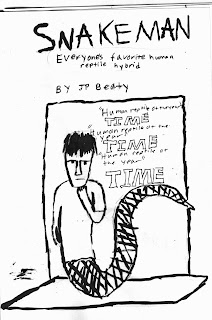 SNAKEMAN
Everyone's favorite human
reptile hybrid
BY JP Beaty
"Human reptile of the year"
TIME
"Human reptile of the
year"
TIME
"Human reptile of
the year"
TIME